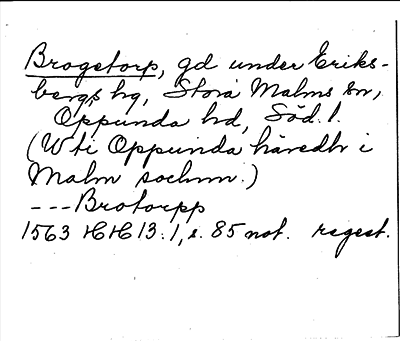 Brogetorp, gd under Eriks-
bergs hg, Stora Malms sn,
Oppunda hd, Söd. l.
(Wti Oppunda häredh i
Malm sochnn.)
---Brotorpp
1563 HH 13:1, s. 85 not. regest.